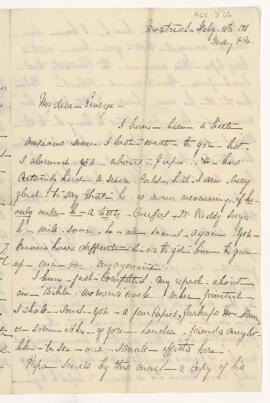 Acc 522
Montreal July 10th
Friday
My dear George
I have been a little
anxious since I last wrote to you lest
I alarmed you about Papa. He has
certainly had a severe but I am very
glad to say that he is now recovering. If he
only will be a little careful Dr Reddy says
he will soon be all himself again. You
know how difficult it is to get him to give
up
I have just completed my report about
our Bible women's work. When printed
I shall send you a few copies, perhaps Mr
or some other of your London friends might
like to see our efforts here.
Papa sends by this mail a copy of his